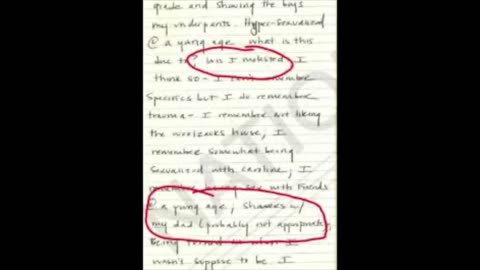 grade and showing the boys
my underpants. Hyper-sexualized
@ a young age. what is this
due to? Was I molested. I
think so - I can't remember
specifics but I do remember
trauma - I remember not liking
the house, I
remember somewhat being
sexualized with caroline; I
remember sex with friends
@ a young age; showers w/
my dad (probably not appropriate)
Being when I
wasn't suppose to be. I
NATION